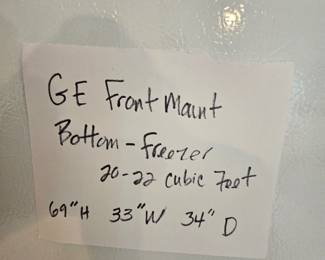 GE Front Maint
Bottom-Freezer
20-22 Cubic Feet
69"H 33"W 34" D